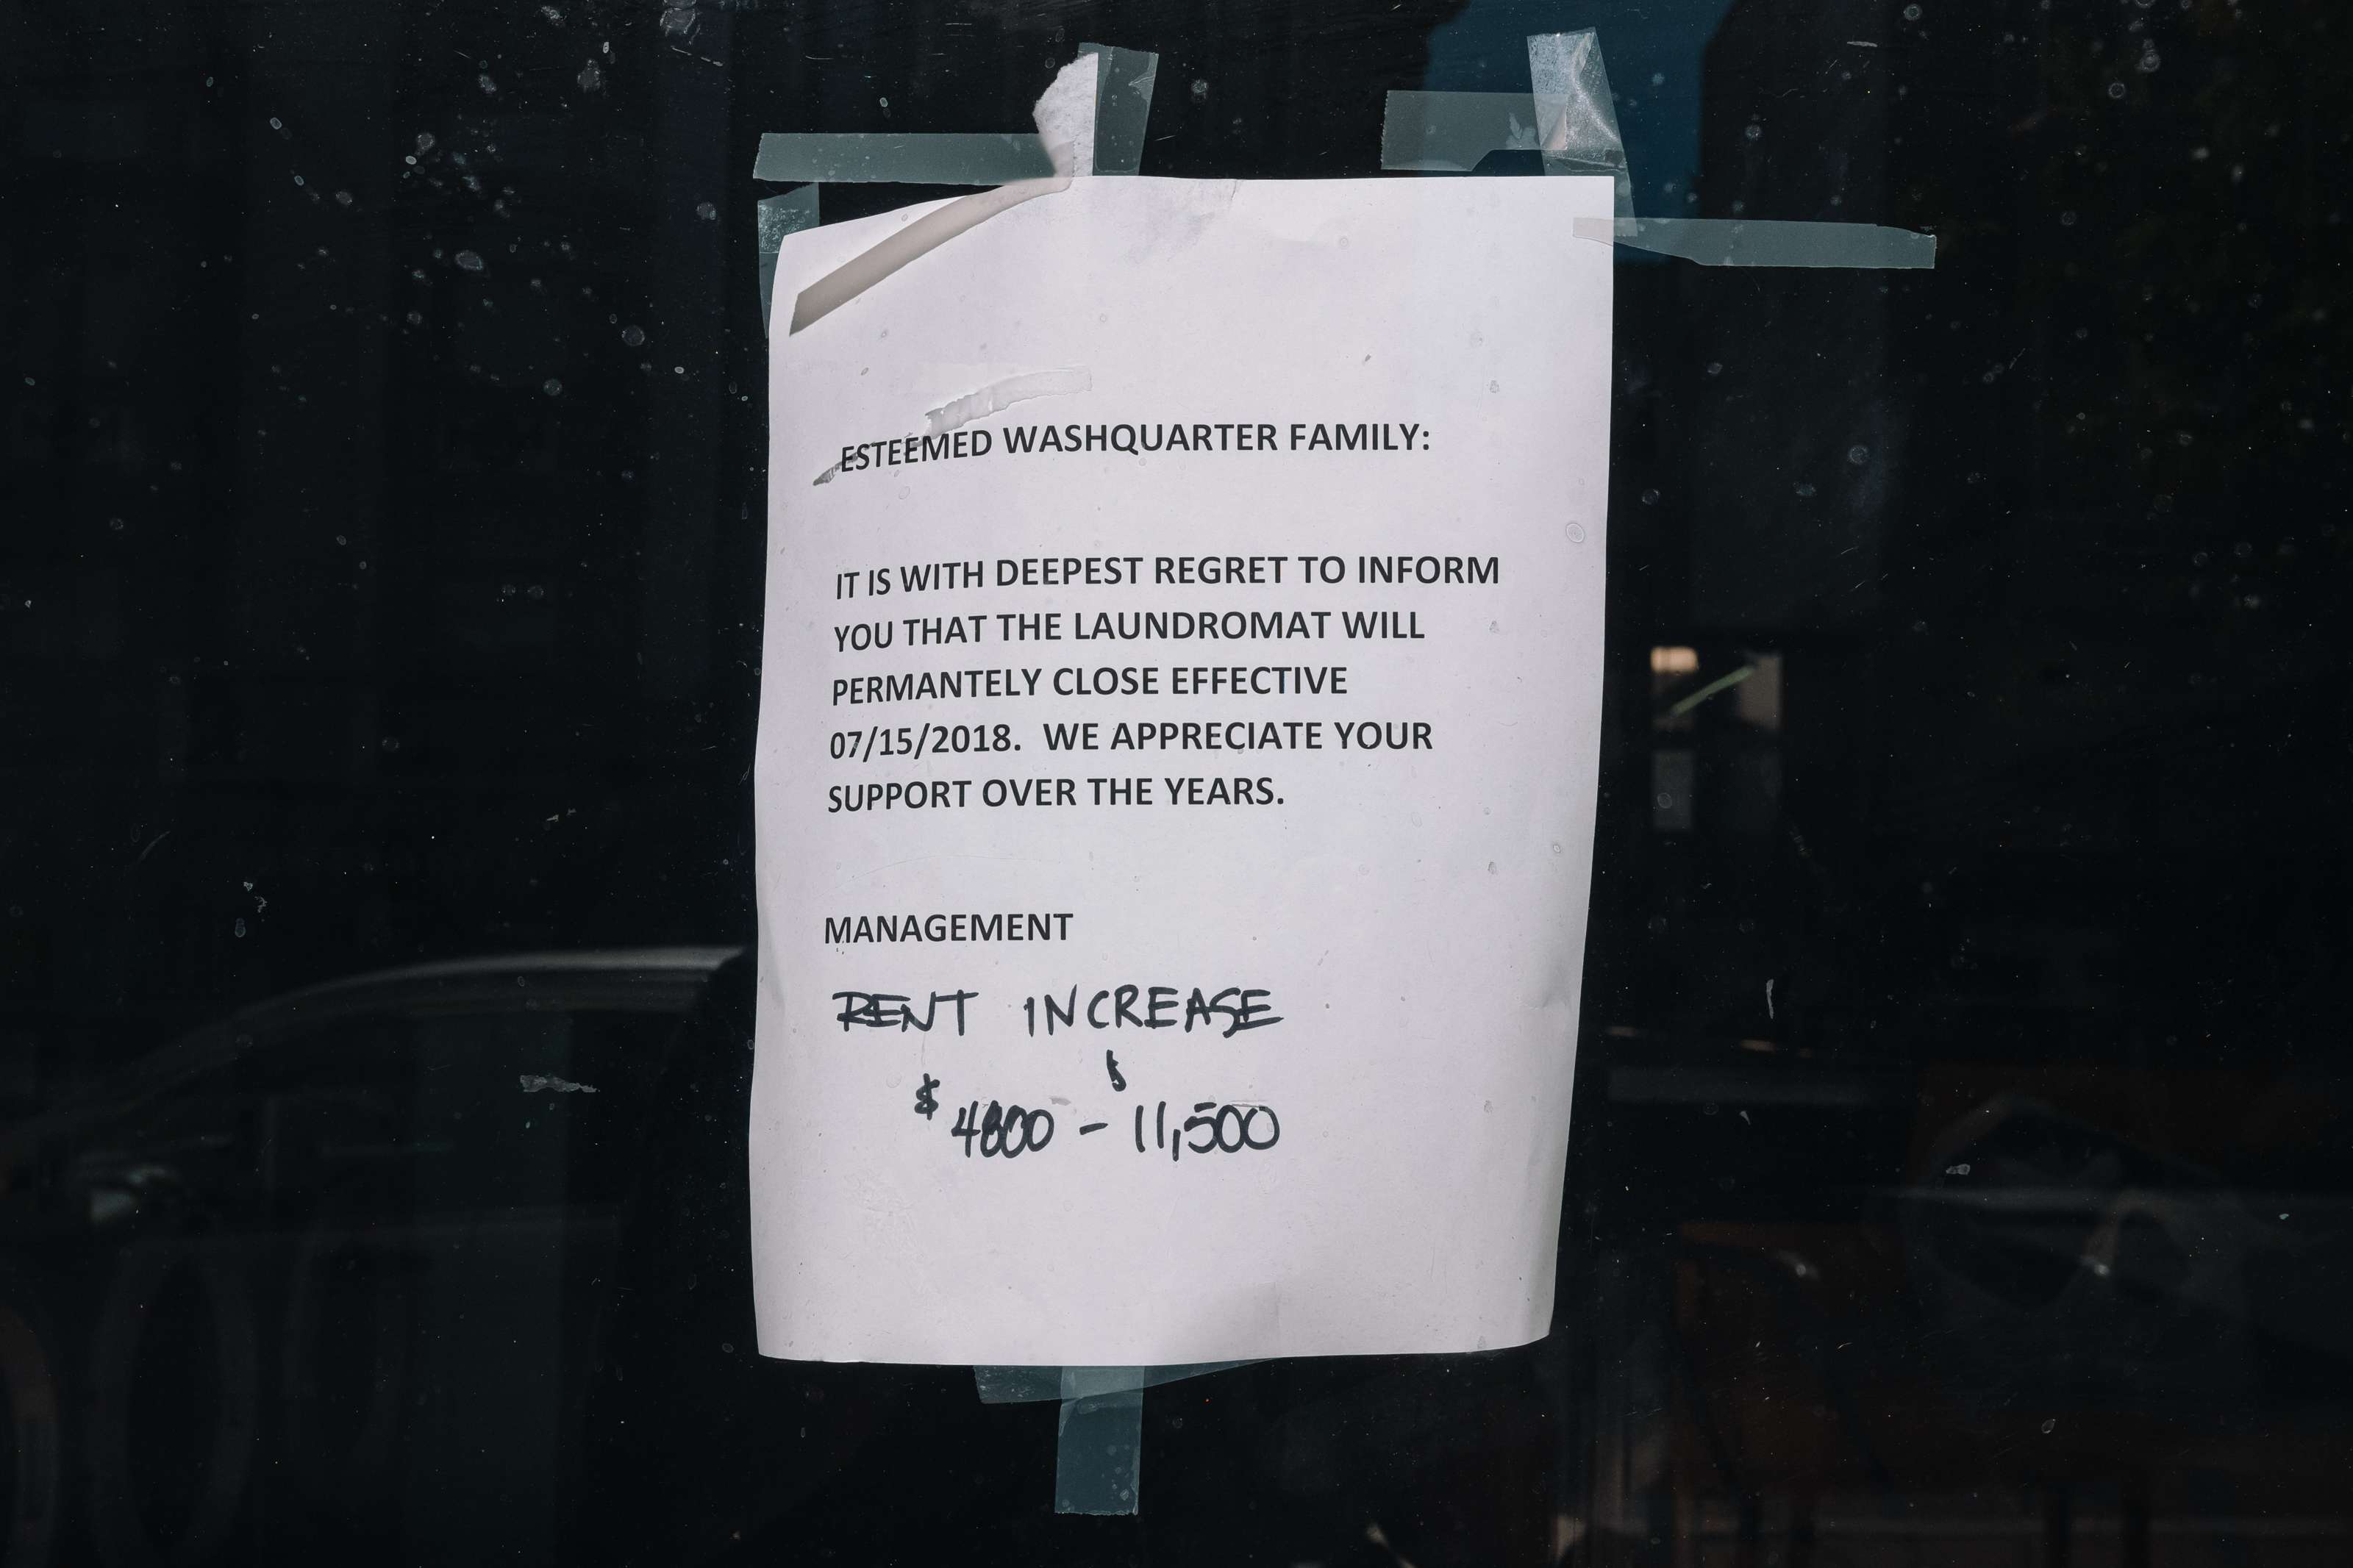 ESTEEMED WASHQUARTER FAMILY:
IT IS WITH DEEPEST REGRET TO INFORM
YOU THAT THE LAUNDROMAT WILL
PERMANTELY CLOSE EFFECTIVE
07/15/2018. WE APPRECIATE YOUR
SUPPORT OVER THE YEARS.
MANAGEMENT
RENT INCREASE
$4800 - $11,500